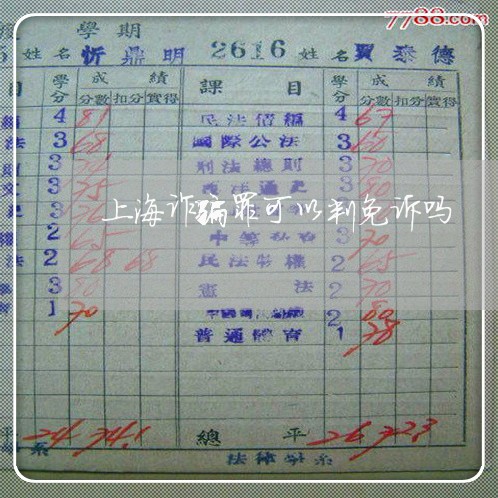 7788.com
學期
姓名 忻鼎明 2616 姓名 賈泰德
目 學分 成績 課目 學分 成績
分數 扣分 實得 分數 扣分 實得
4 81 民法債編 4 67
法 3 68 國際公法 3 60
3 刑法總則 3 70
3 75 3
上海诈骗罪可以判免诉吗
2 65 3 70
法 2 68 68 民法物權 2 65
3 憲法 2 70
1 70 2 80
普通體育 1 78
平 24 74.1 總平 26 72.3
系 法律學系